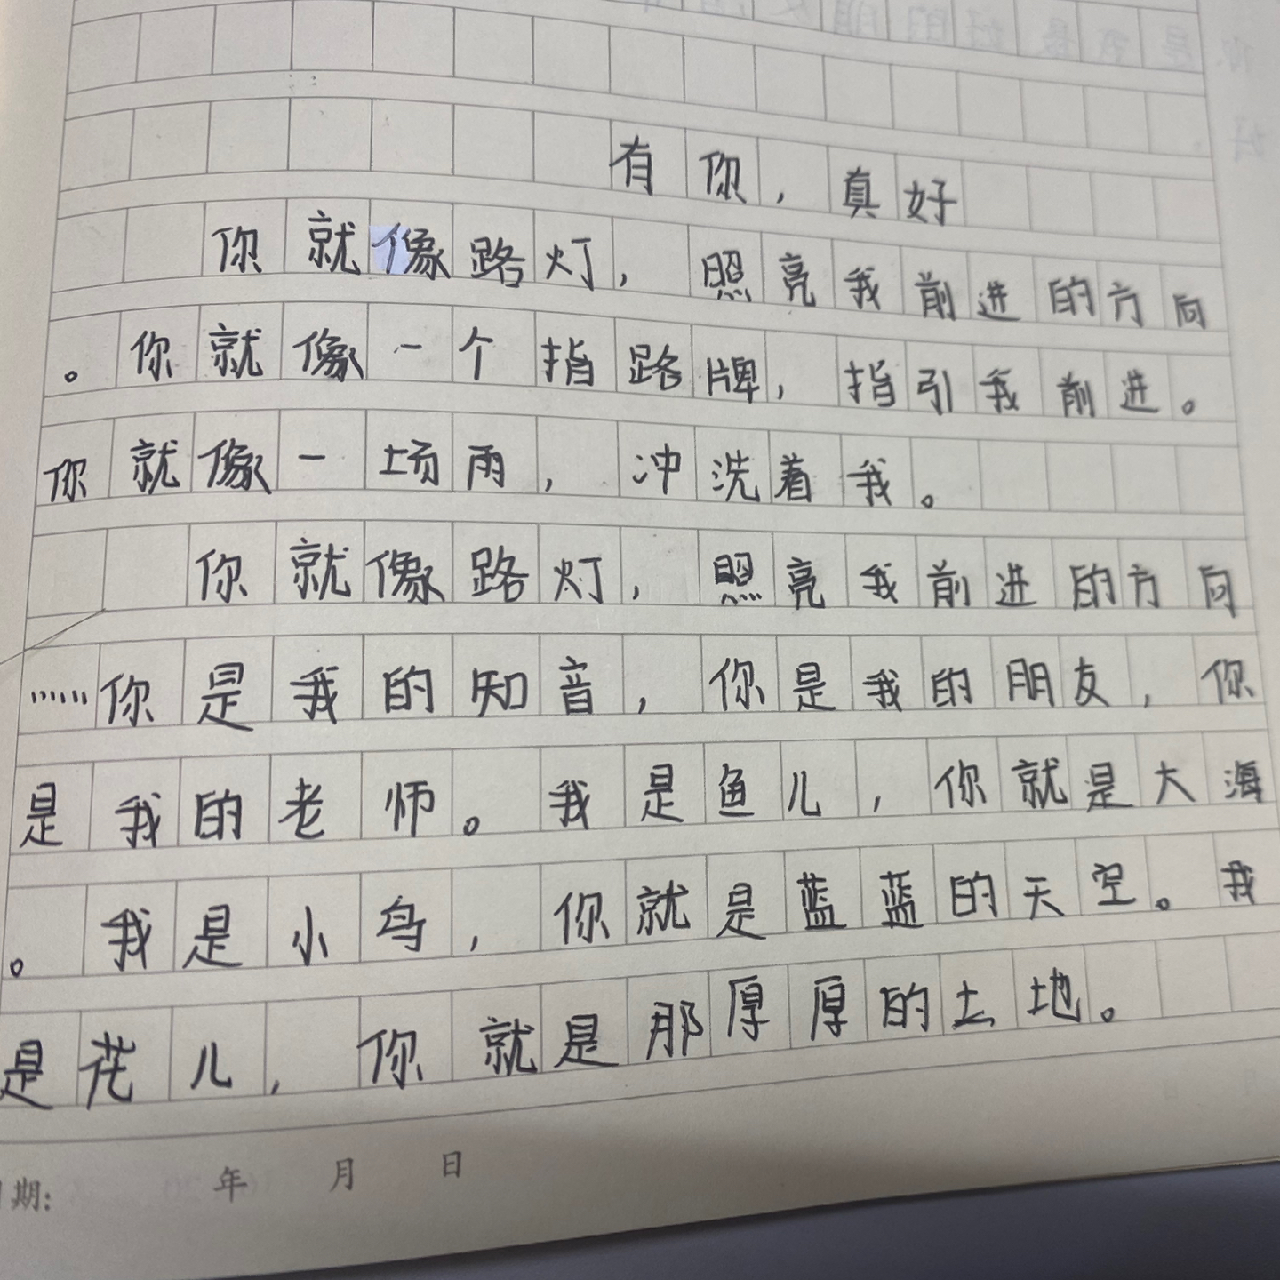 有你，真好
你就像路灯，照亮我前进的方向
。你就像一个指路牌，指引我前进。
你就像一场雨，冲洗着我。
你就像路灯，照亮我前进的方向
……你是我的知音，你是我的朋友，你
是我的老师。我是鱼儿，你就是大海
。我是小鸟，你就是蓝蓝的天空。我
是花儿，你就是那厚厚的土地。
期： 年 月 日